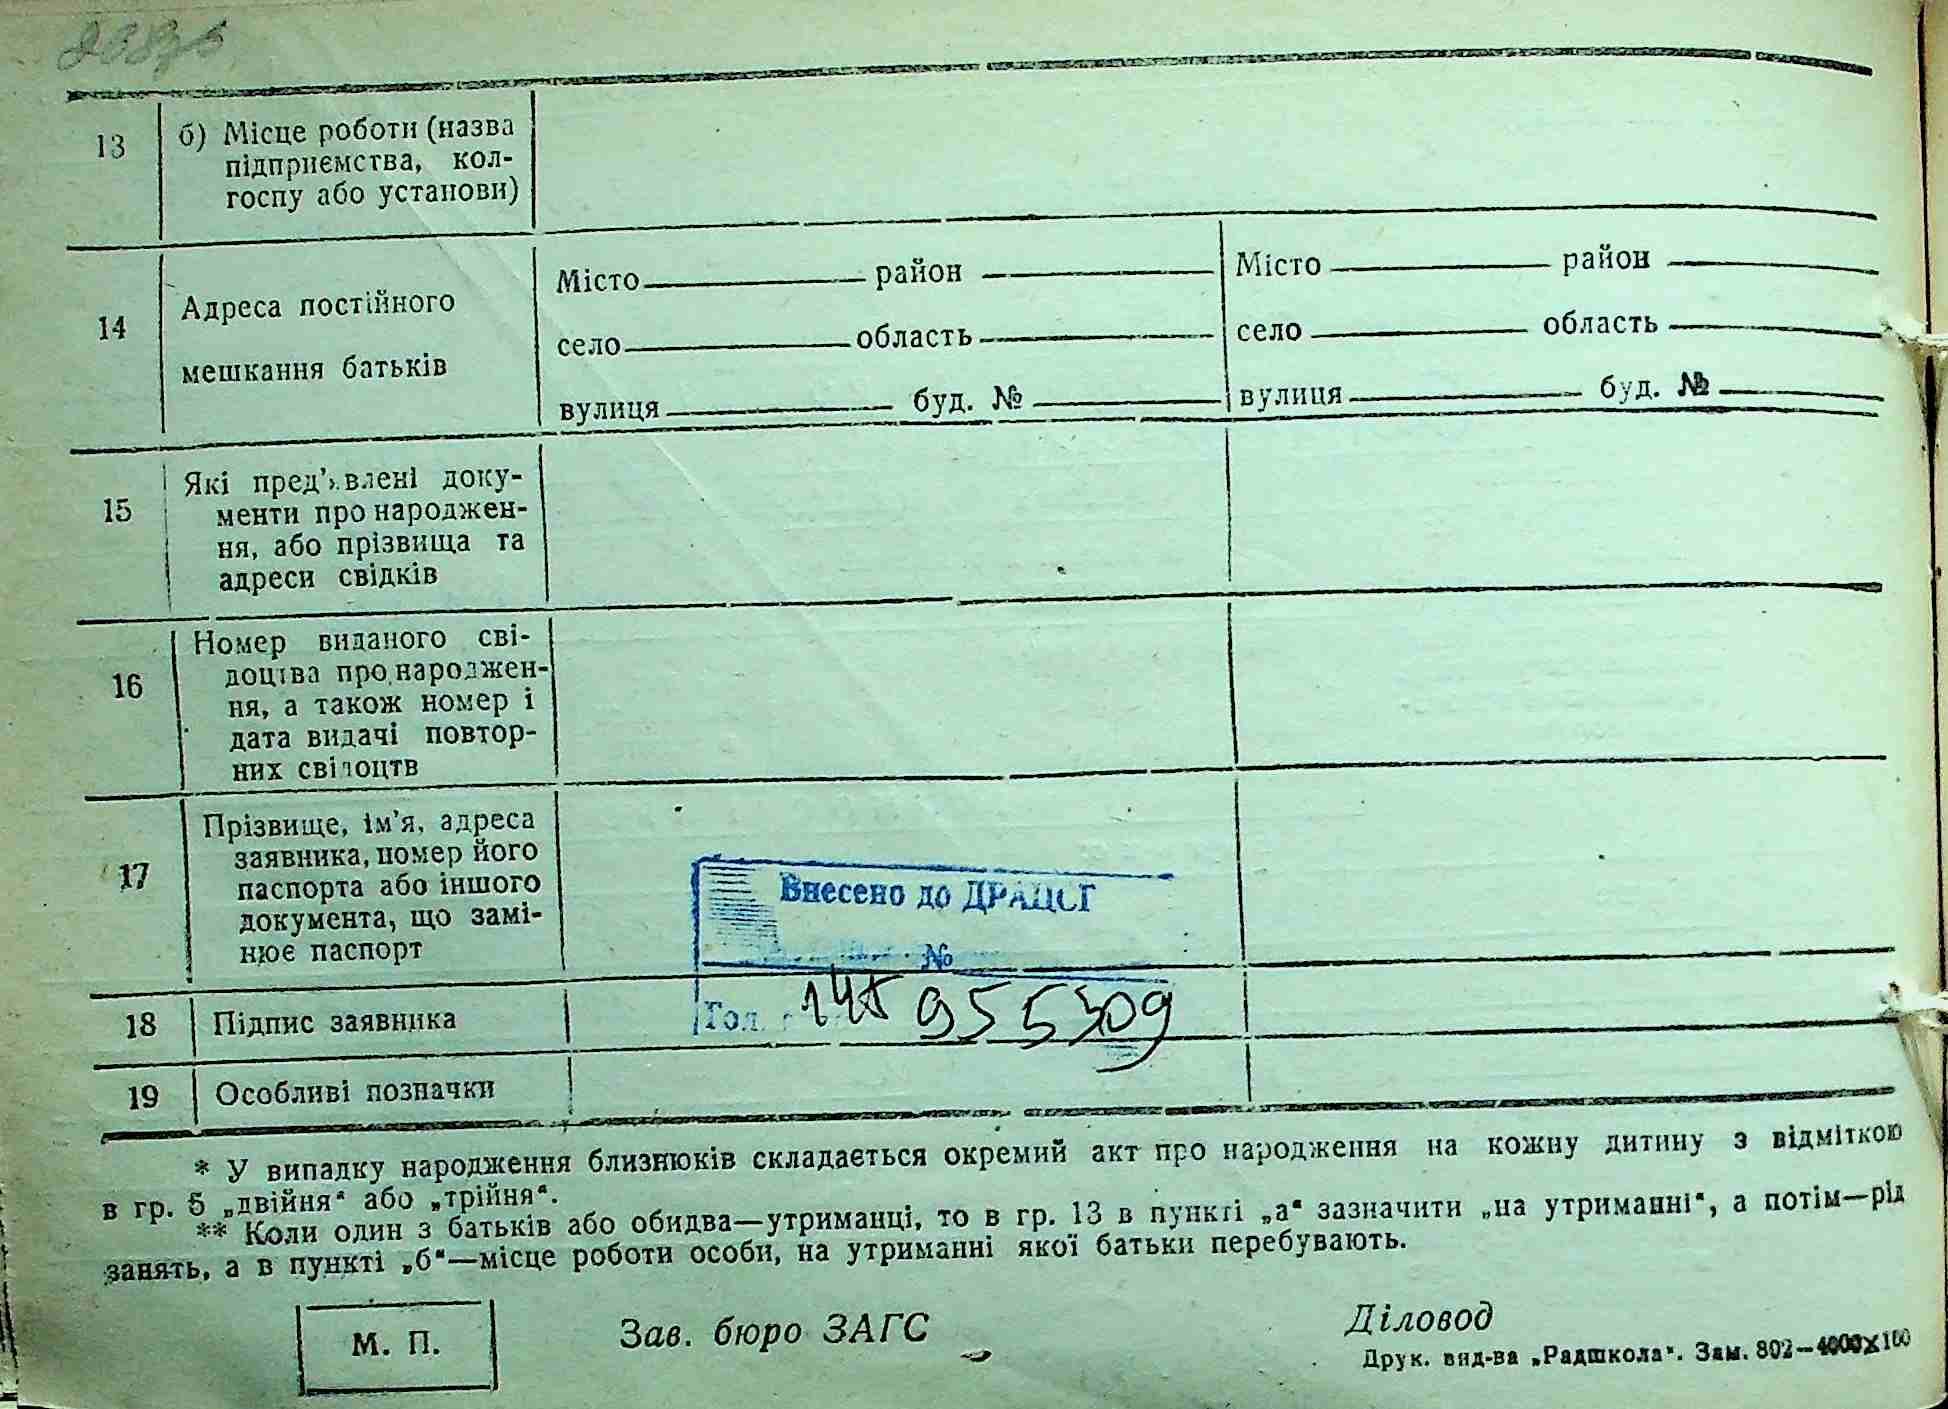 13
б) Місце роботи (назва
підприємства, кол-
госпу або установи)
14
Адреса постійного
мешкання батьків
Місто район
село область
вулиця буд. №
Місто район
село область
вулиця буд. №
15
Які пред'явлені доку-
менти про народжен-
ня, або прізвища та
адреси свідків
16
Номер виданого сві-
доцтва про народжен-
ня, а також номер і
дата видачі повтор-
них свідоцтв
17
Прізвище, ім'я, адреса
заявника, номер його
паспорта або іншого
документа, що замі-
нює паспорт
Внесено до ДРАЦСГ
№
Гол.
955309
18
Підпис заявника
19
Особливі позначки
* У випадку народження близнюків складається окремий акт про народження на кожну дитину з відміткою
в гр. 5 „двійня“ або „трійня“.
** Коли один з батьків або обидва—утриманці, то в гр. 13 в пункті „а“ зазначити „на утриманні“, а потім—рід
занять, а в пункті „б“—місце роботи особи, на утриманні якої батьки перебувають.
М. П.
Зав. бюро ЗАГС
Діловод
Друк. вид-ва „Радшкола“. Зам. 802—4000×100